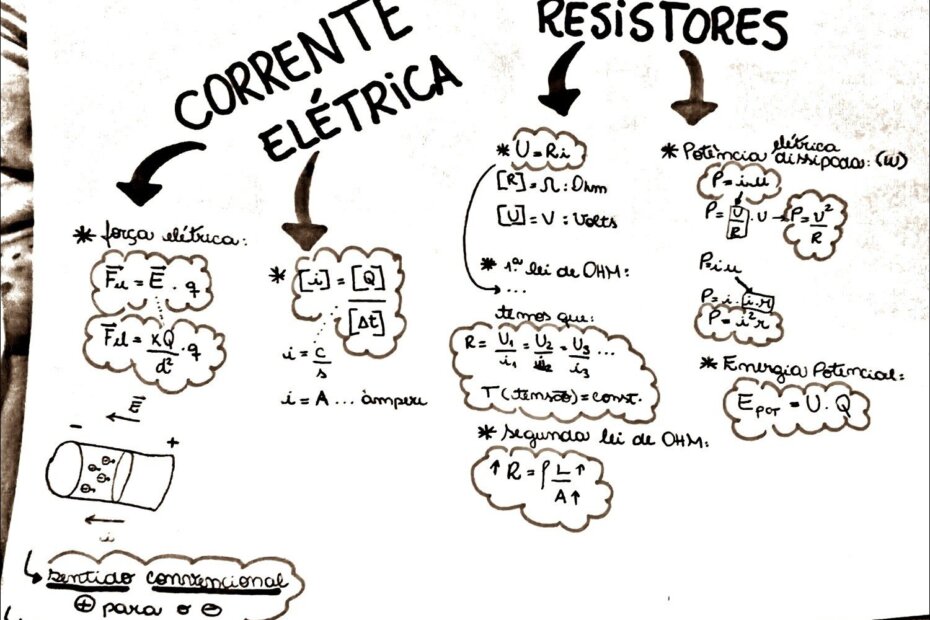 CORRENTE
ELÉTRICA
* força elétrica:
F⃗el = E⃗ . q
F⃗el = KQ/d² . q
E⃗
- +
i
sentido convencional
⊕ para o ⊖
* [i] = [Q]/[Δt]
i = C/s
i = A ... ampere
RESISTORES
* U = Ri
[R] = Ω : Ohm
[U] = V : Volts
* 1ª lei de OHM:
...
temos que:
R = U₁/i₁ = U₂/i₂ = U₃/i₃ ...
T (tensão) = const.
* segunda lei de OHM:
↑ R = ρ L↑/A↑
* Potência elétrica dissipada: (W)
P = i.U
P = U/R . U → P = U²/R
P = i.U
P = i . i.r
P = i²r
* Energia Potencial:
E POT = U . Q